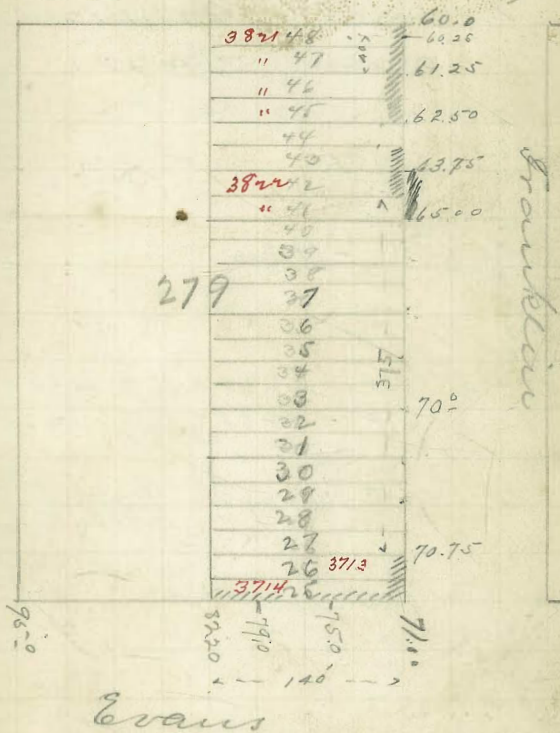 60.0
3821 48 60.25
" 47 61.25
" 46
" 45 62.50
44
43 63.75
3822 42
" 41 65.00
40
39
38
279 37
36
35
34
33 70.0
32
31
30
29
28
27 70.75
26 3713
3714 25
375
Franklin
95.0 82.20 79.0 75.0 71.0
140
Evans